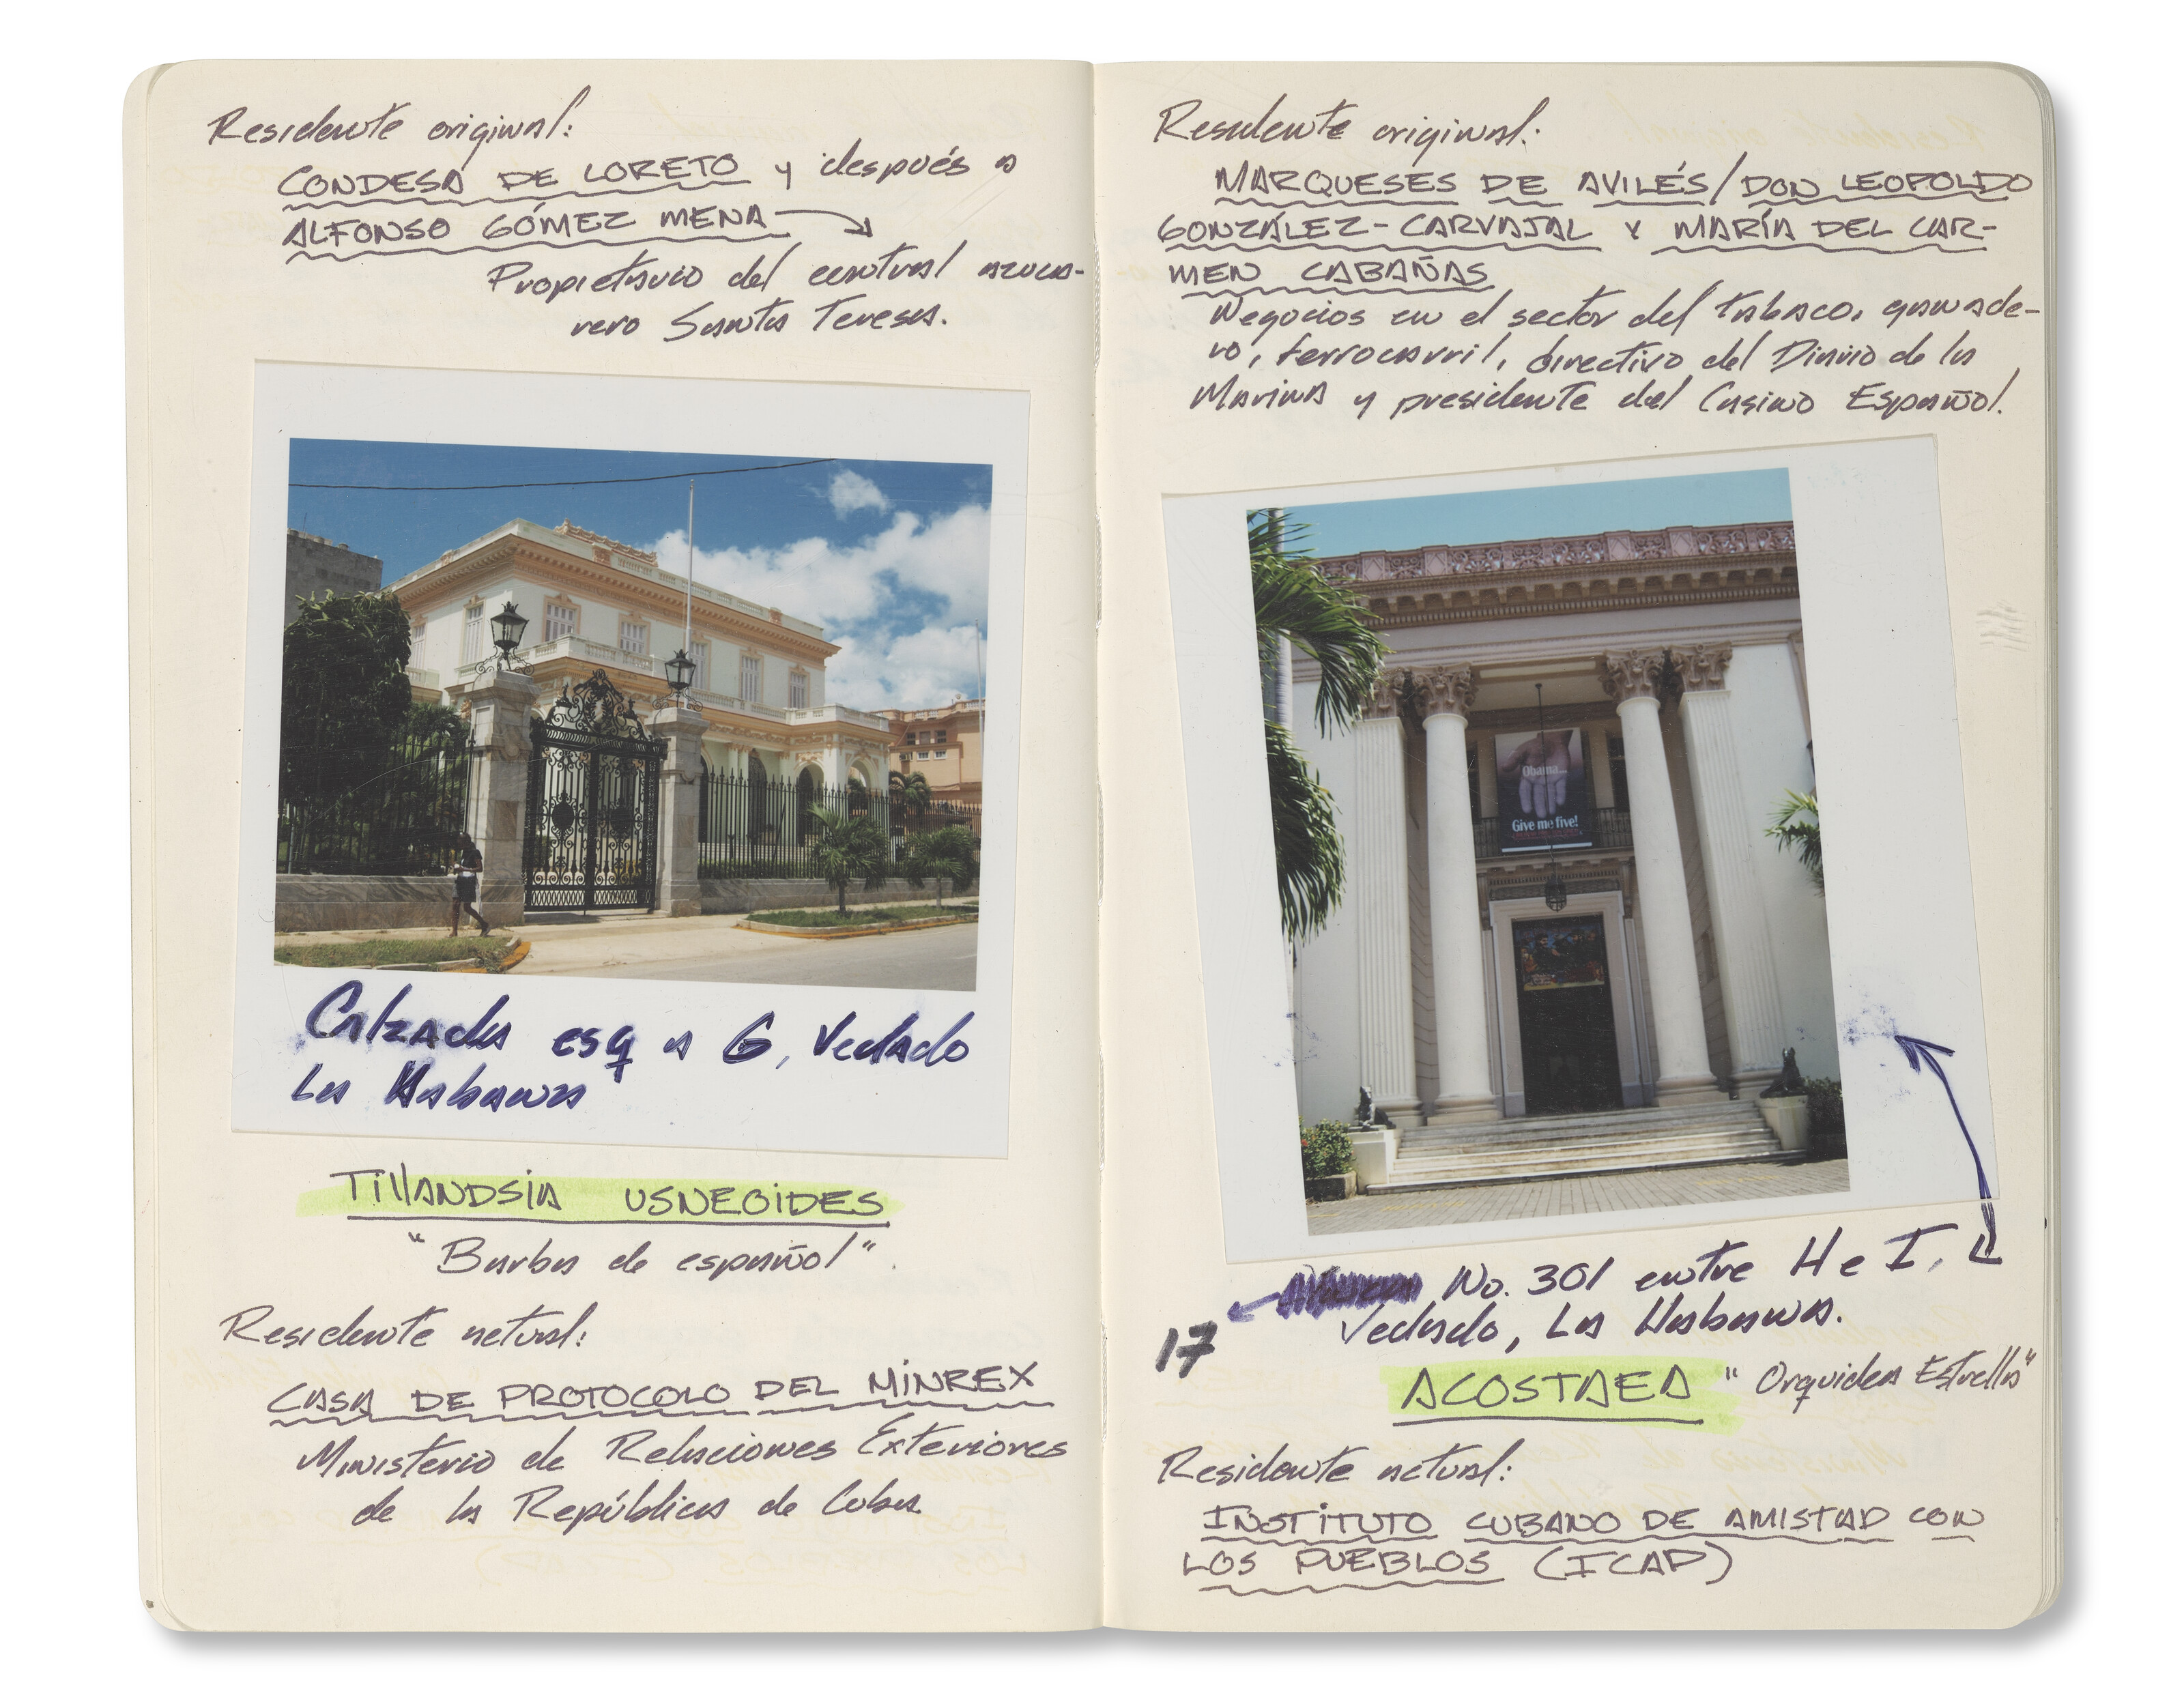 Residente original:
CONDESA DE LORETO y después a
ALFONSO GÓMEZ MENA
Propietario del central azuca-
rero Santa Teresa.
Calzada esq a G, Vedado
La Habana
TillANDSIA USNEOIDES
"Barba de español"
Residente actual:
CASA DE PROTOCOLO DEL MINREX
Ministerio de Relaciones Exteriores
de la República de Cuba
Residente original:
MARQUESES DE AVILÉS/DON LEOPOLDO
GONZÁLEZ-CARVAJAL Y MARÍA DEL CAR-
MEN CABAÑAS
Negocios en el sector del tabaco, ganade-
ro, ferrocarril, directivo del Diario de la
Marina y presidente del Casino Español.
Obama...
Give me five!
17
No. 301 entre H e I,
Vedado, La Habana.
ACOSTAEA "Orquidea Estrella"
Residente actual:
INSTITUTO CUBANO DE AMISTAD CON
LOS PUEBLOS (ICAP)